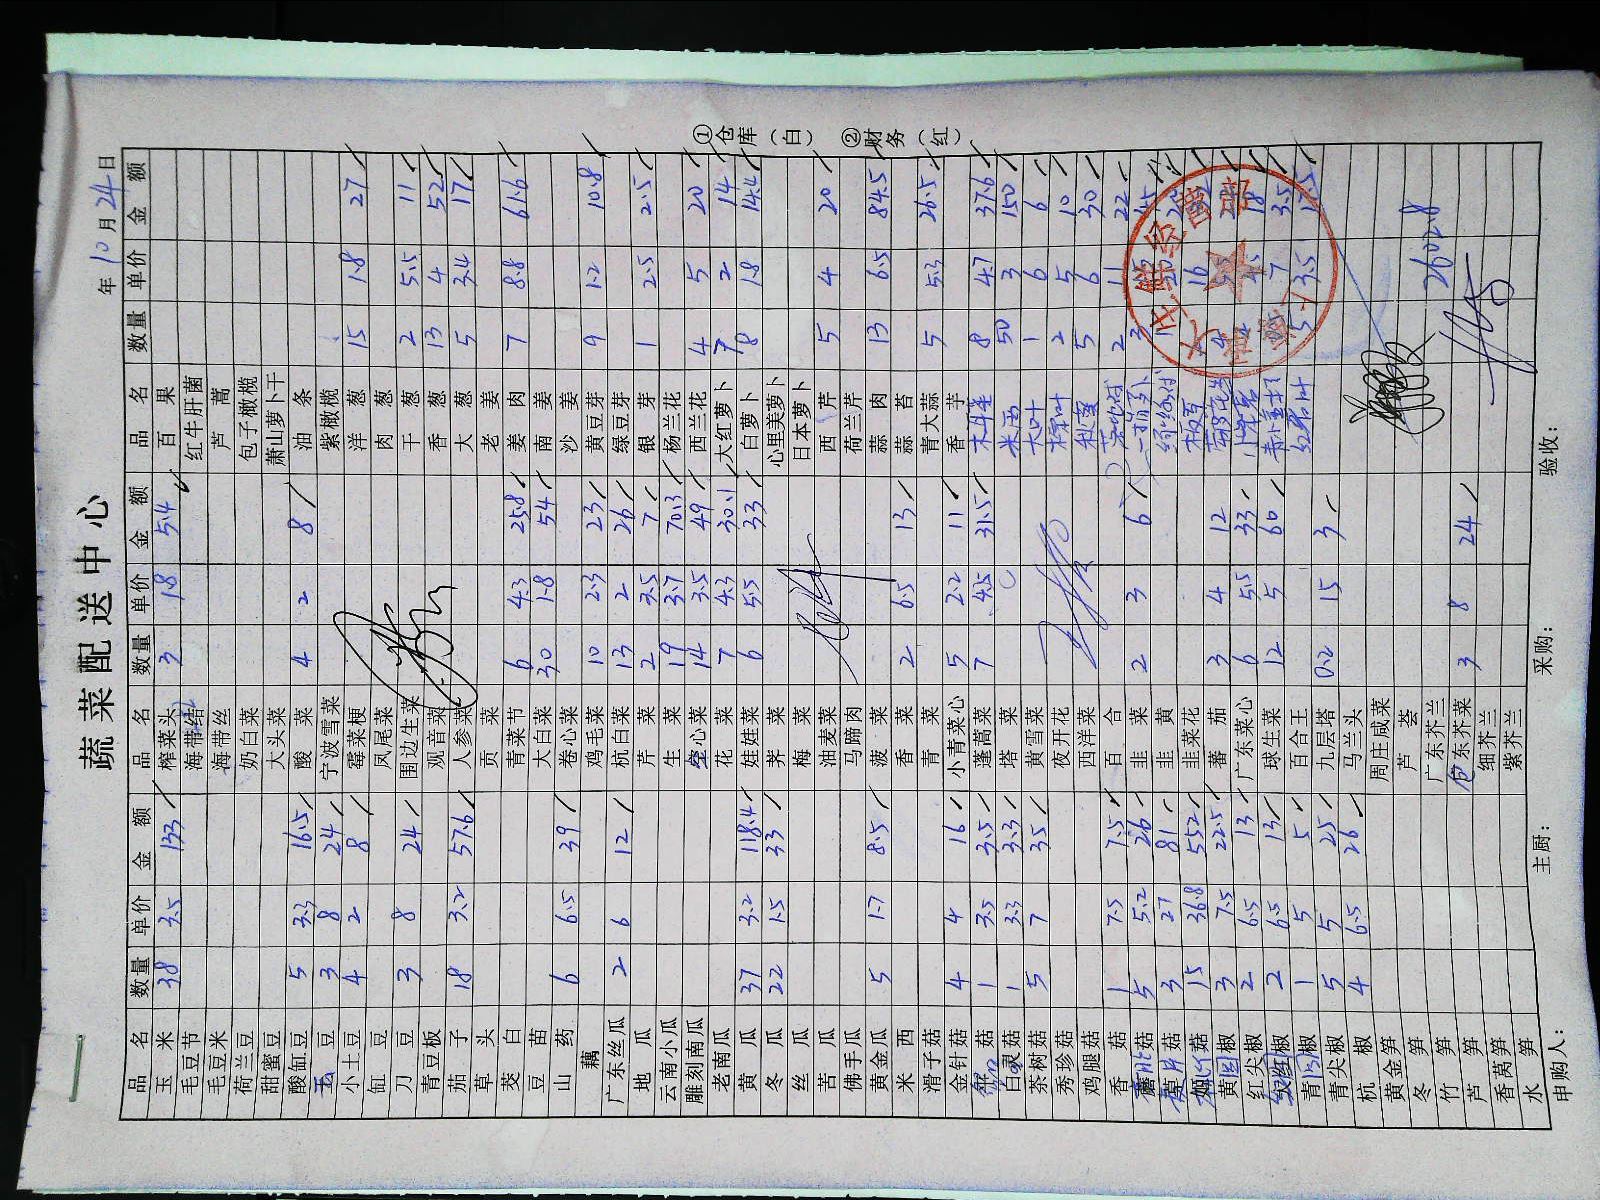 蔬菜配送中心
年 10 月 24 日
品名 数量 单价 金额 品名 数量 单价 金额 品名 数量 单价 金额
玉米 38 3.5 133 榨菜头 3 1.8 5.4 百果
毛豆节 海带结 红牛肝菌
毛豆米 海带丝 芦蒿
荷兰豆 奶白菜 包子橄榄
甜蜜豆 大头菜 萧山萝卜干
酸缸豆 5 3.3 16.5 酸菜 4 2 8 油条
豆 3 8 24 宁波雪菜 紫橄榄
小土豆 4 2 8 霉菜梗 洋葱 15 1.8 27
缸豆 凤尾菜 肉葱
刀豆 3 8 24 围边生菜 干葱 2 5.5 11
青豆板 观音菜 香葱 13 4 52
茄子 18 3.2 57.6 人参菜 大葱 5 3.4 17
草头 贡菜 老姜
茭白 青菜节 6 4.3 25.8 姜肉 7 8.8 61.6
豆苗 大白菜 30 1.8 54 南姜
山药 6 6.5 39 卷心菜 沙姜
藕 鸡毛菜 10 2.3 23 黄豆芽 9 1.2 10.8
广东丝瓜 2 6 12 杭白菜 13 2 26 绿豆芽
地瓜 芹菜 2 3.5 7 银芽 1 2.5 2.5
云南小瓜 生菜 19 3.7 70.3 杨兰花
雕刻南瓜 空心菜 14 3.5 49 西兰花 4 5 20
老南瓜 花菜 7 4.3 30.1 大红萝卜 7 2 14
黄瓜 37 3.2 118.4 娃娃菜 6 5.5 33 白萝卜 8 1.8 14.4
冬瓜 22 1.5 33 荠菜 心里美萝卜
丝瓜 梅菜 日本萝卜
苦瓜 油麦菜 西芹 5 4 20
佛手瓜 马蹄肉 荷兰芹
黄金瓜 5 1.7 8.5 菠菜 蒜肉 13 6.5 84.5
米西 香菜 2 6.5 13 蒜苔
滑子菇 青菜 青大蒜 5 5.3 26.5
金针菇 4 4 16 小青菜心 5 2.2 11 香芋
菇 1 3.5 3.5 蓬蒿菜 7 4.5 31.5 8 4.7 37.6
白灵菇 1 3.3 3.3 塔菜 50 3 150
茶树菇 5 7 35 黄雪菜 大叶 1 6 6
秀珍菇 夜开花 2 5 10
鸡腿菇 西洋菜 5 6 30
香菇 1 7.5 7.5 百合 2 11 22
蘑菇 5 5.2 26 韭菜 2 3 6 3
草菇 3 27 81 韭黄
菇 15 36.8 552 韭菜花 16
黄椒 3 7.5 22.5 蕃茄 3 4 12 4
红尖椒 2 6.5 13 广东菜心 6 5.5 33 18
红椒 2 6.5 13 球生菜 12 5 60 7 3.5
青椒 1 5 5 百合王 5 3.5 17.5
青尖椒 5 5 25 九层塔 0.2 15 3
杭椒 4 6.5 26 马兰头
黄金笋 周庄咸菜
冬笋 芦荟
竹笋 广东芥兰
芦笋 包东芥菜 3 8 24 2602.8
香莴笋 细芥兰
水笋 紫芥兰
申购人： 主厨： 采购： 验收：
①仓库（白） ②财务（红）